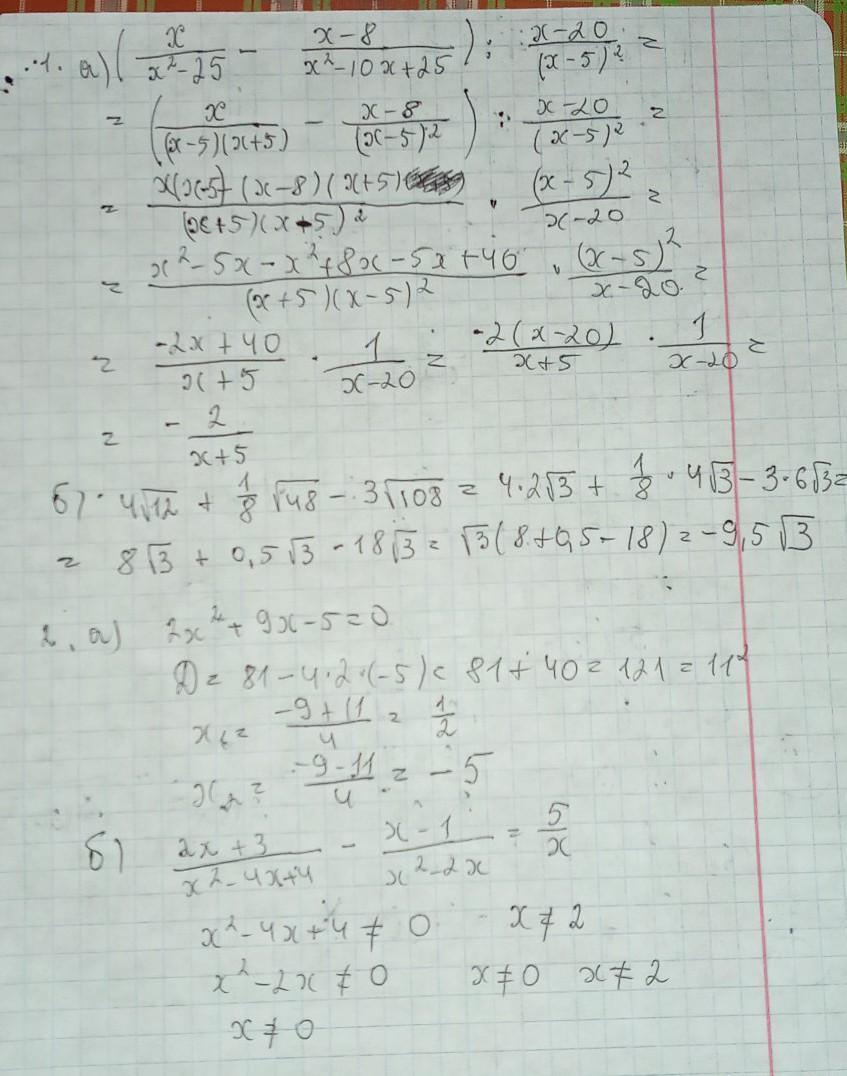 1. а) (x/(x²-25) - (x-8)/(x²-10x+25)) : (x-20)/(x-5)² =
= (x/((x-5)(x+5)) - (x-8)/(x-5)²) : (x-20)/(x-5)² =
= (x(x-5)-(x-8)(x+5))/((x+5)(x-5)²) · (x-5)²/(x-20) =
= (x²-5x-x²+8x-5x+40)/((x+5)(x-5)²) · (x-5)²/(x-20) =
= (-2x+40)/(x+5) · 1/(x-20) = (-2(x-20))/(x+5) · 1/(x-20) =
= - 2/(x+5)
б) 4√12 + 1/8 √48 - 3√108 = 4·2√3 + 1/8 · 4√3 - 3·6√3 =
= 8√3 + 0,5√3 - 18√3 = √3(8+0,5-18) = -9,5√3
2. а) 2x² + 9x - 5 = 0
D = 81 - 4·2·(-5) = 81 + 40 = 121 = 11²
x₁ = (-9+11)/4 = 1/2
x₂ = (-9-11)/4 = -5
б) (2x+3)/(x²-4x+4) - (x-1)/(x²-2x) = 5/x
x²-4x+4 ≠ 0 x ≠ 2
x²-2x ≠ 0 x ≠ 0 x ≠ 2
x ≠ 0